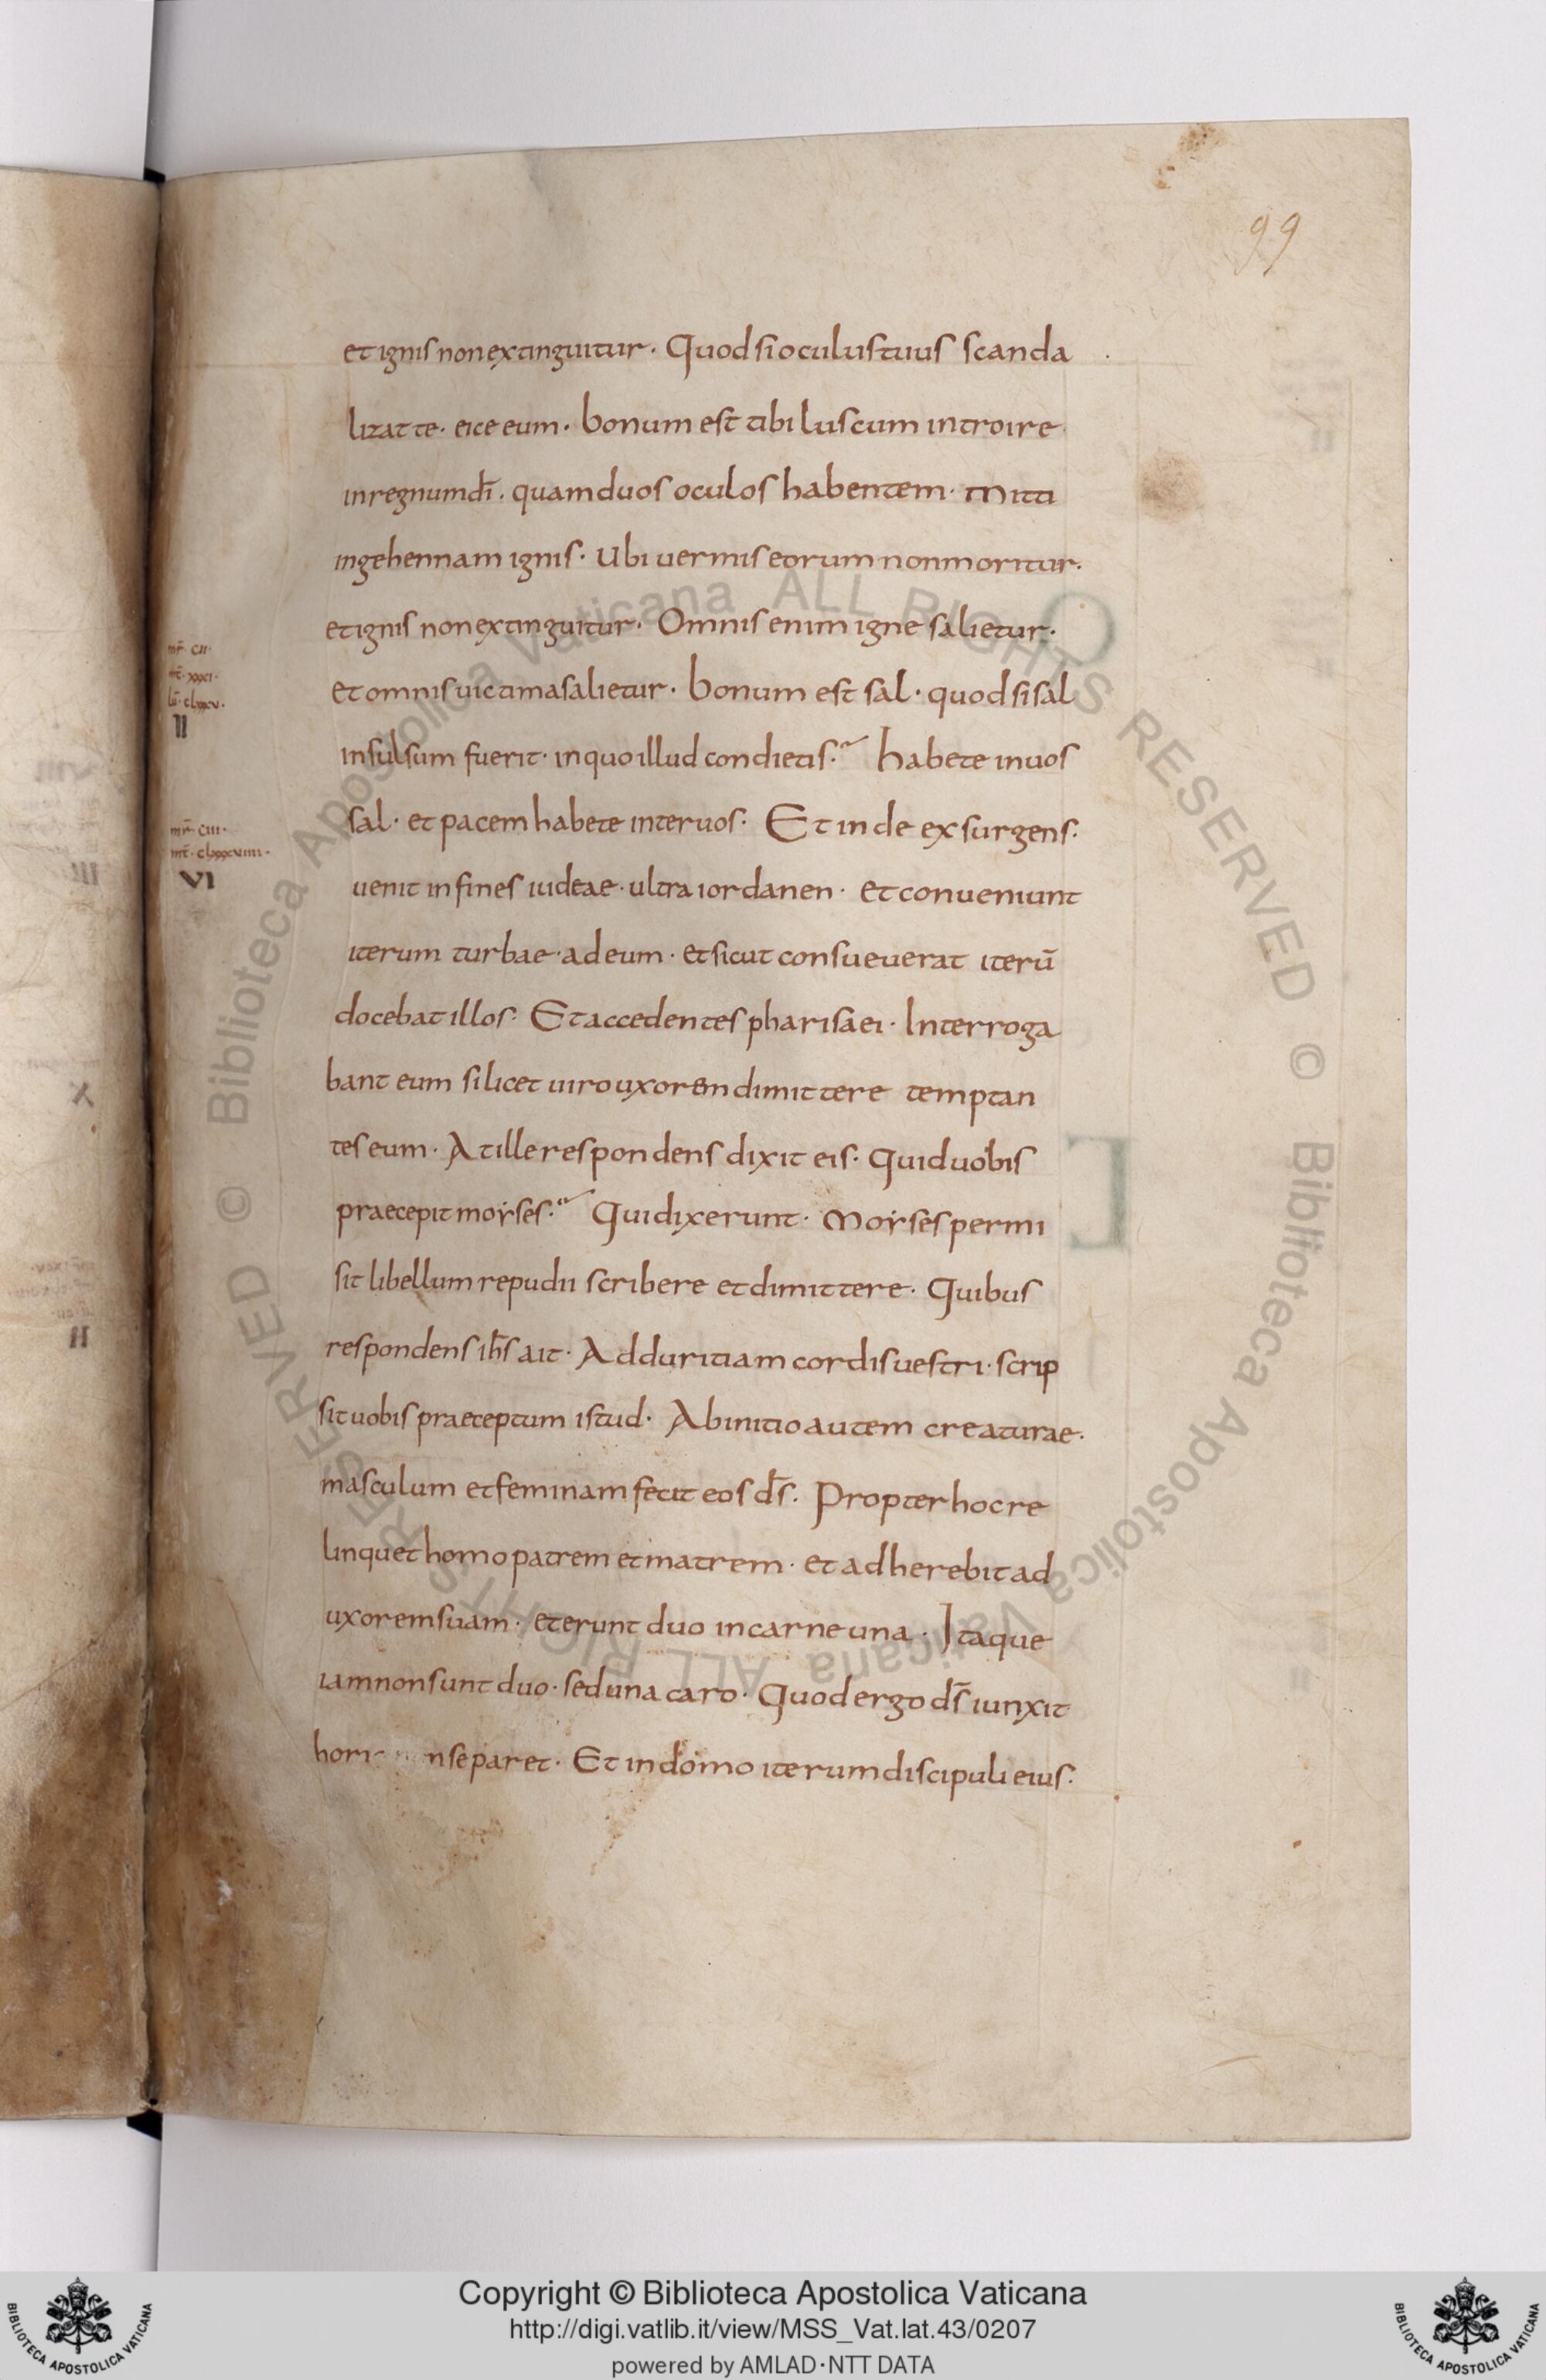 99
et ignis non extinguitur. Quod si oculus tuus scanda
lizat te. eice eum. bonum est tibi luscum introire
in regnum dī. quam duos oculos habentem. mitti
in gehennam ignis. Ubi uermis eorum non moritur.
et ignis non extinguitur. Omnis enim igne salietur.
mr̄ CII.
mt̄. XXXI.
lū. clxxxv.
II
et omnis uictima salietur. bonum est sal. quod si sal
insulsum fuerit. in quo illud condietis? habete in uos
sal. et pacem habete inter uos. Et inde exsurgens.
mr̄ CIII.
mt̄. clxxxviiii.
VI
uenit in fines iudeae. ultra iordanen. et conueniunt
iterum turbae. ad eum. et sicut consueuerat iterū
docebat illos. Et accedentes pharisaei. Interroga
bant eum si licet uiro uxorem dimittere temptan
tes eum. At ille respondens dixit eis. Quid uobis
praecepit moẏses? Qui dixerunt. Moẏses permi
sit libellum repudii scribere et dimittere. Quibus
respondens ih̄s ait. Ad duritiam cordis uestri. scrip
sit uobis praeceptum istud. Ab initio autem creaturae.
masculum et feminam fecit eos d̄s. Propter hoc re
linquet homo patrem et matrem. et adherebit ad
uxorem suam. et erunt duo in carne una. Itaque
iam non sunt duo. sed una caro. Quod ergo d̄s iunxit
separet. Et in domo iterum discipuli eius.
Copyright © Biblioteca Apostolica Vaticana
http://digi.vatlib.it/view/MSS_Vat.lat.43/0207
powered by AMLAD·NTT DATA
BIBLIOTECA APOSTOLICA VATICANA
BIBLIOTECA APOSTOLICA VATICANA
© Biblioteca Apostolica Vaticana ALL RIGHTS RESERVED © Biblioteca Apostolica Vaticana ALL RIGHTS RESERVED